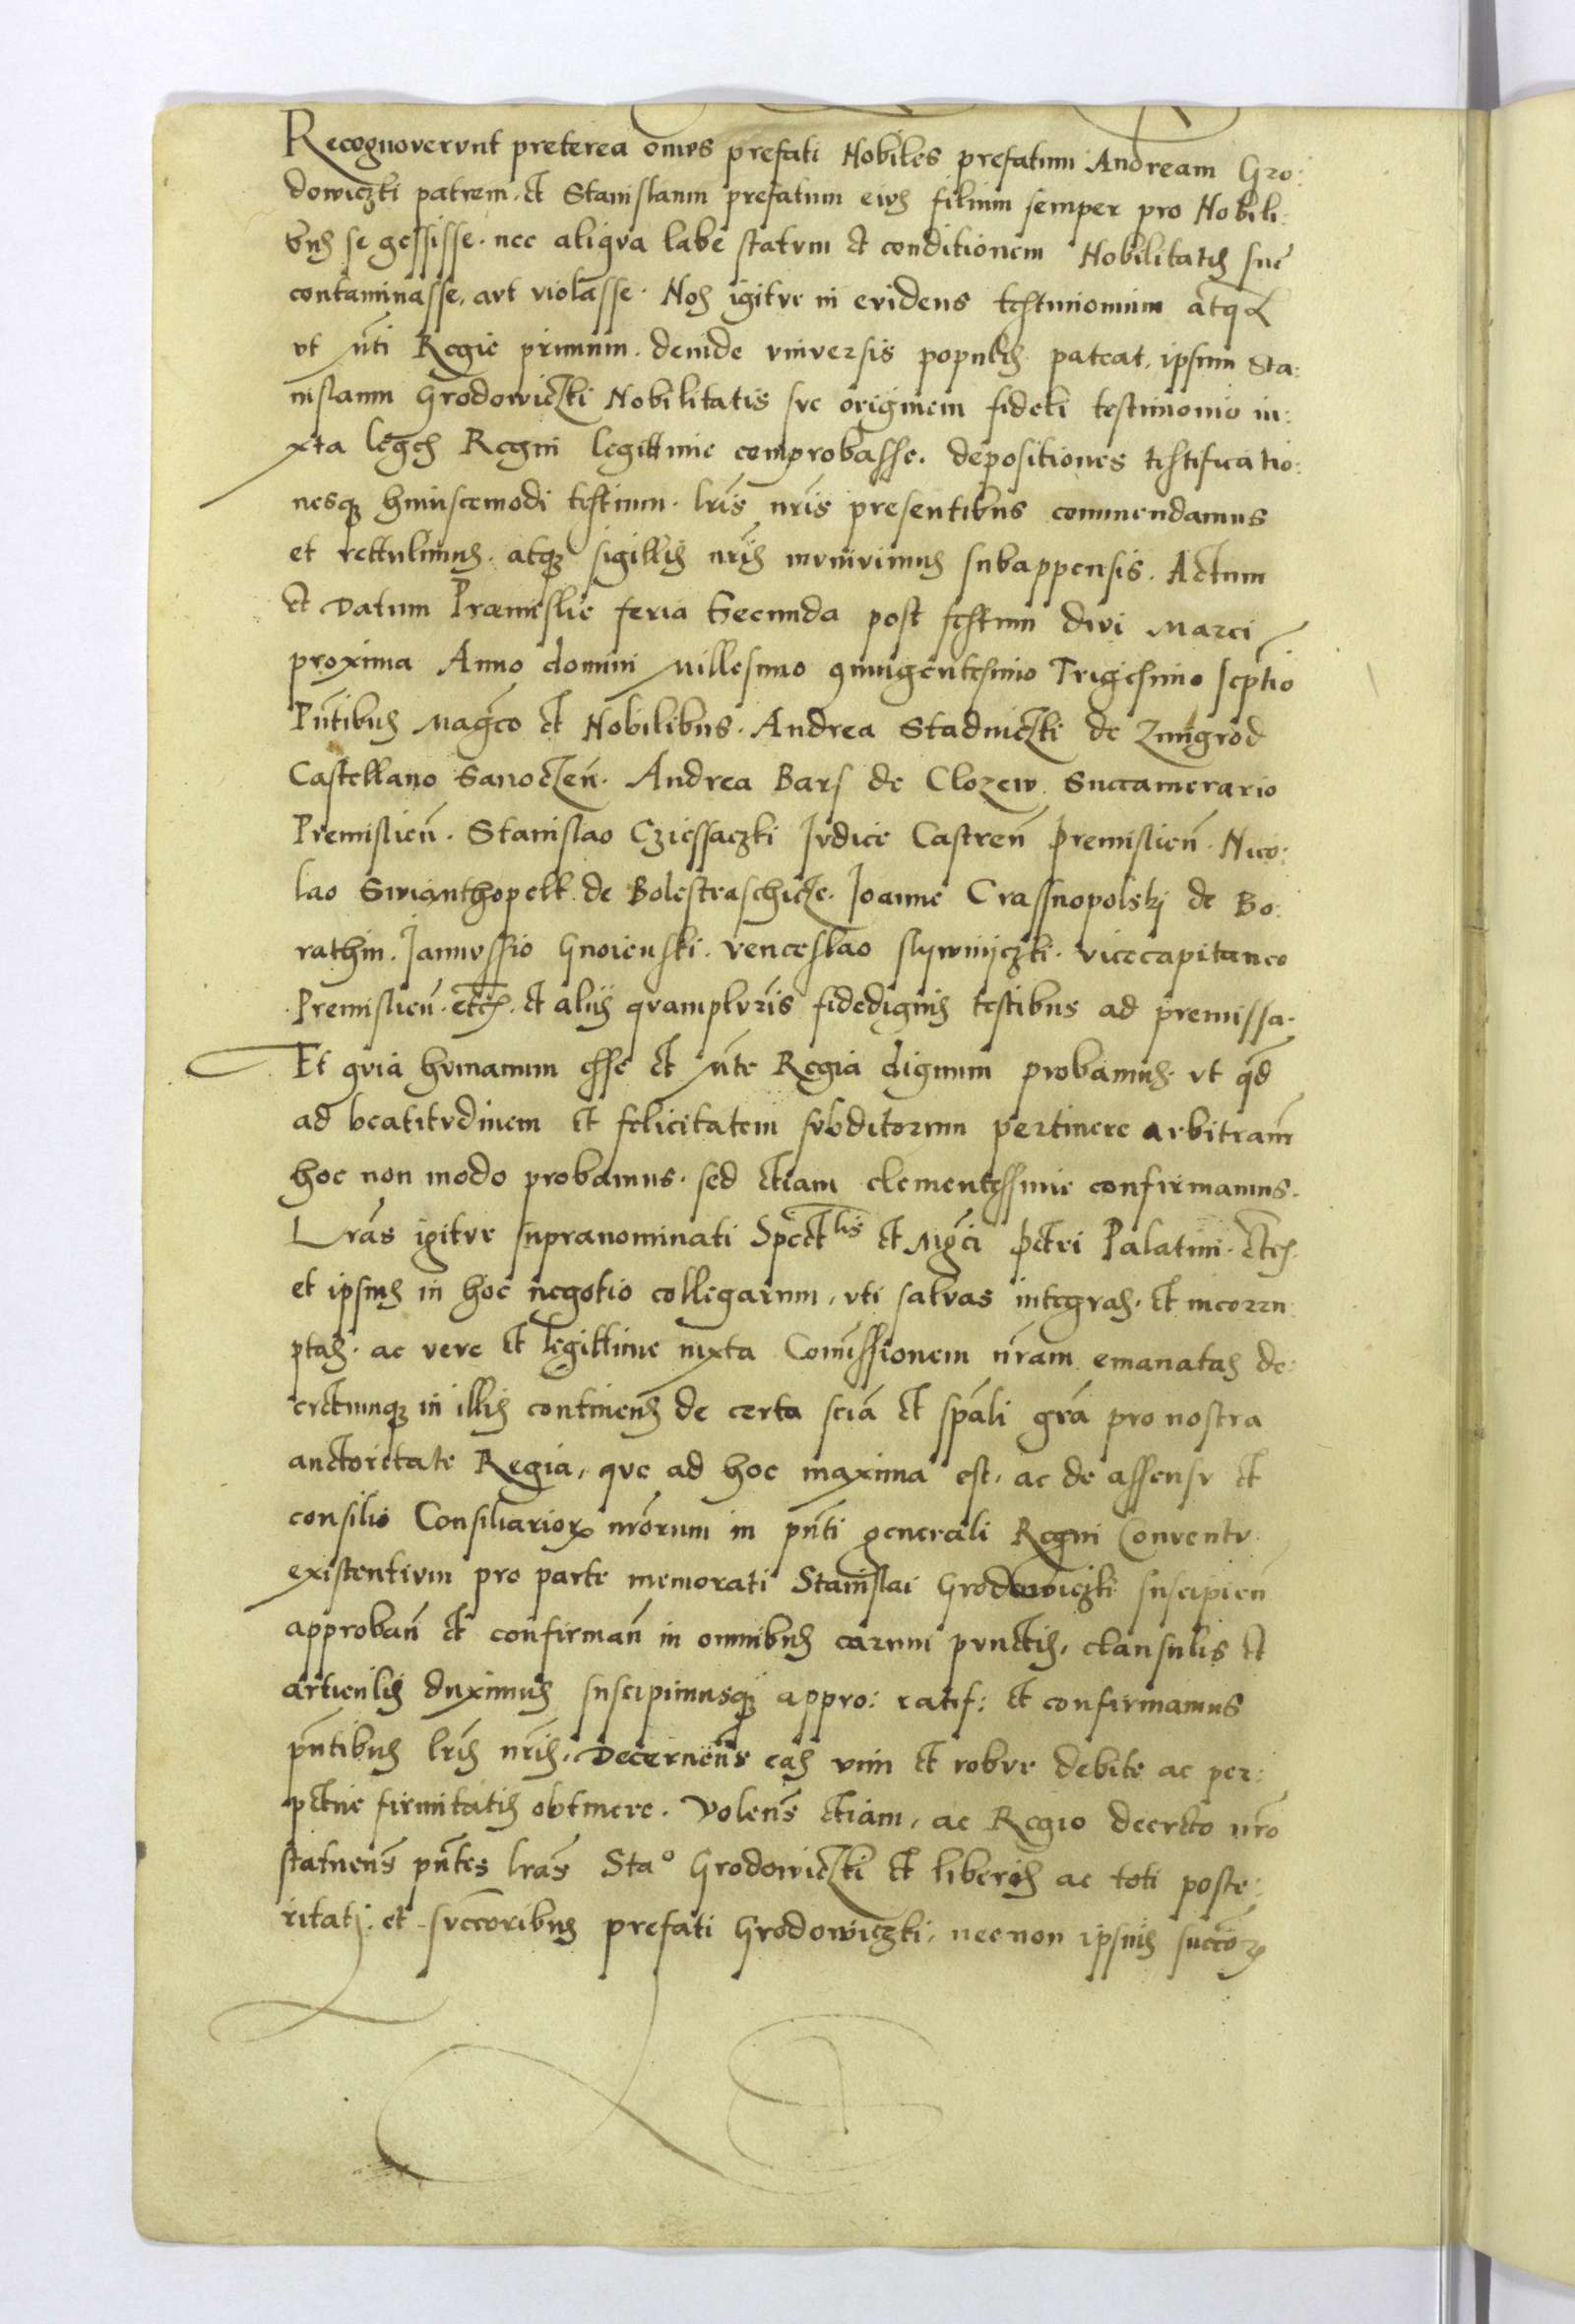 Recognoverunt preterea om̃es prefati Nobiles prefatum Andream Gro:
dowiczki patrem, et Stanislaum prefatum eius filium semper pro Nobili:
bus se gessisse. nec aliqva labe statvm et conditionem Nobilitatis sue
contaminasse, avt violasse. Nos igitvr in evidens testimonium atq̃
vt M̃ti Regie primum. deinde vniversis populis pateat, ipsum Sta:
nislaum Grodowiczki Nobilitatis sve originem fideli testimonio iu:
xta leges Regni legittime comprobasse. depositiones testificatio:
nesq3 huiuscemodi testium. lr̃is nr̃is presentibus commendamus
et rettulimus. atq3 sigillis nr̃is mvnivimus subappensis. Actum
et Datum Præmislie feria Secunda post festum divi Marci
proxima Anno domini Millesimo quingentesimo Trigesimo septĩo
Pñtibus Magc̃o et Nobilibus. Andrea Stadniczki de Zmigrod
Castellano Sanoczeñ. Andrea Bars de Clozew. Succamerario
Premislieñ. Stanislao Cziessaczki Jvdice Castreñ Premislieñ. Nico:
lao Swianthopelk de Bolestraschicze. Joanne Crassnopolskj de Bo:
rathin. Janvssio Gnoienski. Venceslao slywnijczki. vicecapitaneo
Premislieñ. etc̃. et aliis qvamplvris fidedignis testibus ad premissa.
Et qvia hvmanum esse et M̃te Regia dignum probamus. vt qd̃
ad beatitvdinem et felicitatem svbditorum pertinere arbitram̃
hoc non modo probamus. sed etiam clementissime confirmamus.
Lr̃as igitvr supranominati Spect̃lis et Mgc̃i Petri Palatini. etc̃.
et ipsius in hoc negotio collegarum, vti salvas integras. et incorru
ptas. ac vere et legittime iuxta Comissionem nr̃am emanatas de:
cretumq3 in illis continens de certa sciã et spãli grã pro nostra
auctoritate Regia, qve ad hoc maxima est, ac de assensv et
consilio Consiliariorꝝ nr̃orum in pñti generali Regni Conventv
existentivm pro parte memorati Stanislai Grodowiczki suscipieñ
approbañ et confirmañ in omnibus earum pvnctis, clausulis et
articulis duximus suscipimusq3 appro: ratif: et confirmamus
pñtibus lr̃is nr̃is. Decerneñs eas vim et robvr debite ac per:
petue firmitatis obtinere. Voleñs etiam, ac Regio decreto nr̃o
statueñs pñtes lr̃as Staº Grodowiczki et liberis ac toti poste:
ritatj. et svcc̃oribus prefati Grodowiczki, nec non ipsius succorꝝ